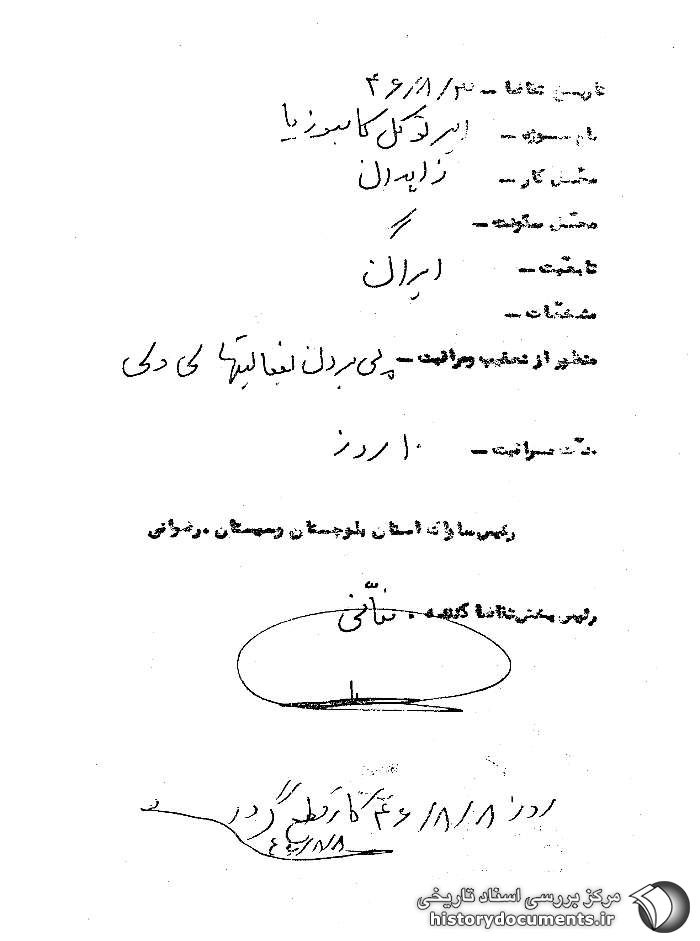 تاریخ تقاضا – ۴۶/۸/۳
نام سوژه – امیر توکل کامبوزیا
محل کار – زاهدان
محل سکونت – //
تابعیت – ایران
مشخصات –
منظور از تعقیب و مراقبت – پی بردن بفعالیتهای وی
مدت مراقبت – ۱۰ روز
رئیس ساواک استان بلوچستان و سیستان . رضوانی
رئیس بخش تقاضا کننده .
روز ۴۶/۸/۸ کار قطع گردد
۴۶/۸/۸
مرکز بررسی اسناد تاریخی
historydocuments.ir